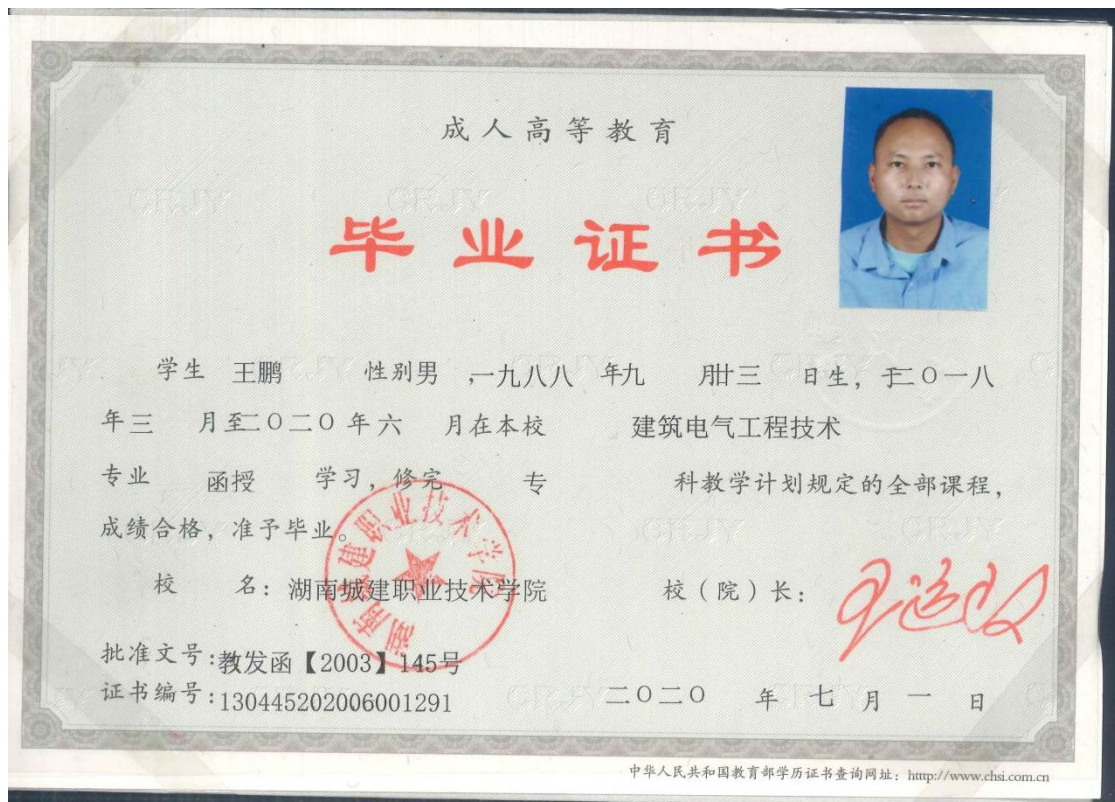 成人高等教育
毕业证书
学生 王鹏 性别男 ,一九八八 年九 月廿三 日生，于二〇一八
年三 月至二〇二〇年六 月在本校 建筑电气工程技术
专业 函授 学习，修完 专 科教学计划规定的全部课程，
成绩合格，准予毕业。
湖南城建职业技术学院
校 名：湖南城建职业技术学院 校（院）长：
批准文号:教发函【2003】145号
证书编号:130445202006001291 二〇二〇 年 七 月 一 日
中华人民共和国教育部学历证书查询网址：http://www.chsi.com.cn